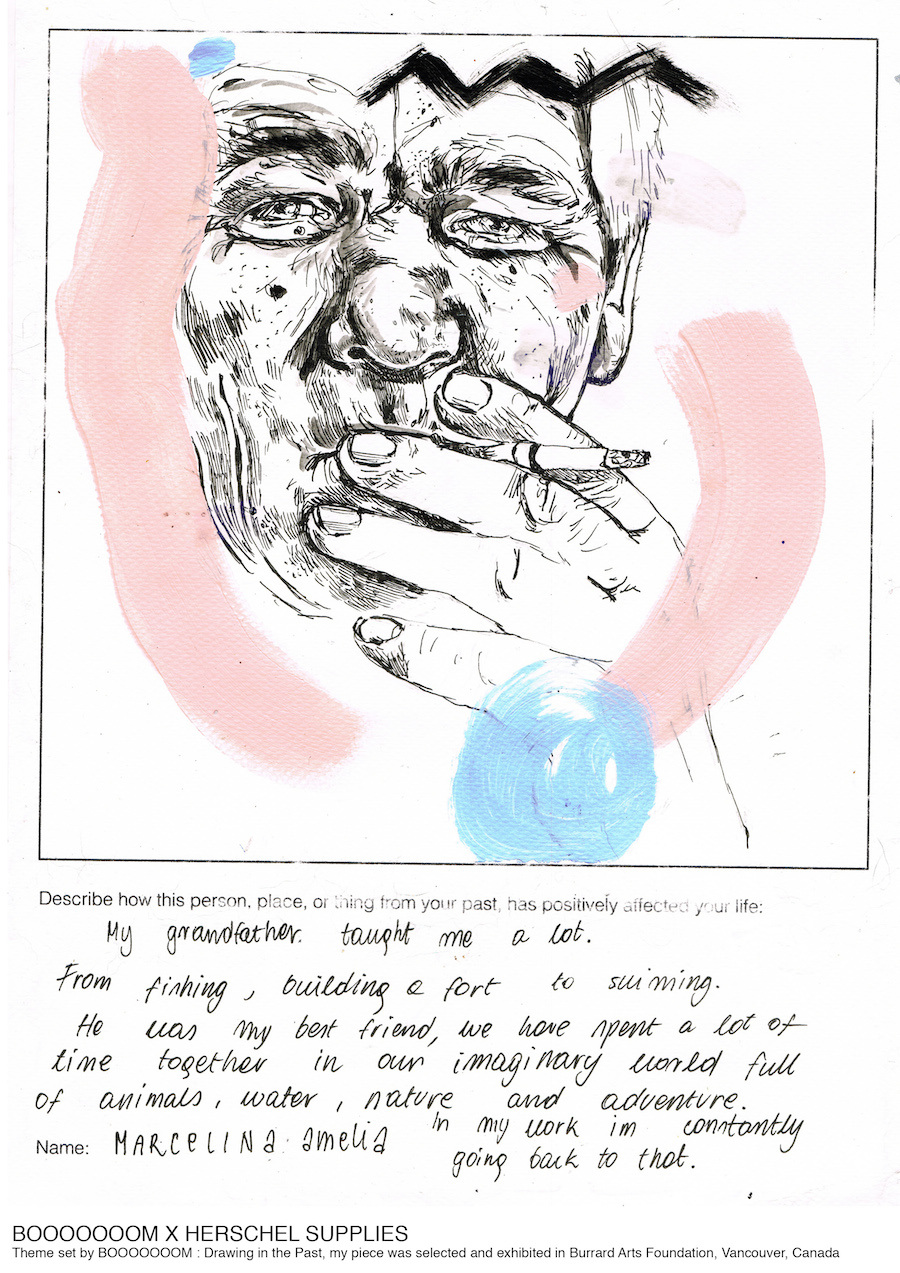 Describe how this person, place, or thing from your past, has positively affected your life:
My grandfather. taught me a lot.
From fishing, building a fort to suiming.
He was my best friend, we have spent a lot of
time together in our imaginary world full
of animals, water, nature and adventure.
In my work im constantly
Name: MARCELINA amelia
going back to that.
BOOOOOOOM X HERSCHEL SUPPLIES
Theme set by BOOOOOOOM : Drawing in the Past, my piece was selected and exhibited in Burrard Arts Foundation, Vancouver, Canada